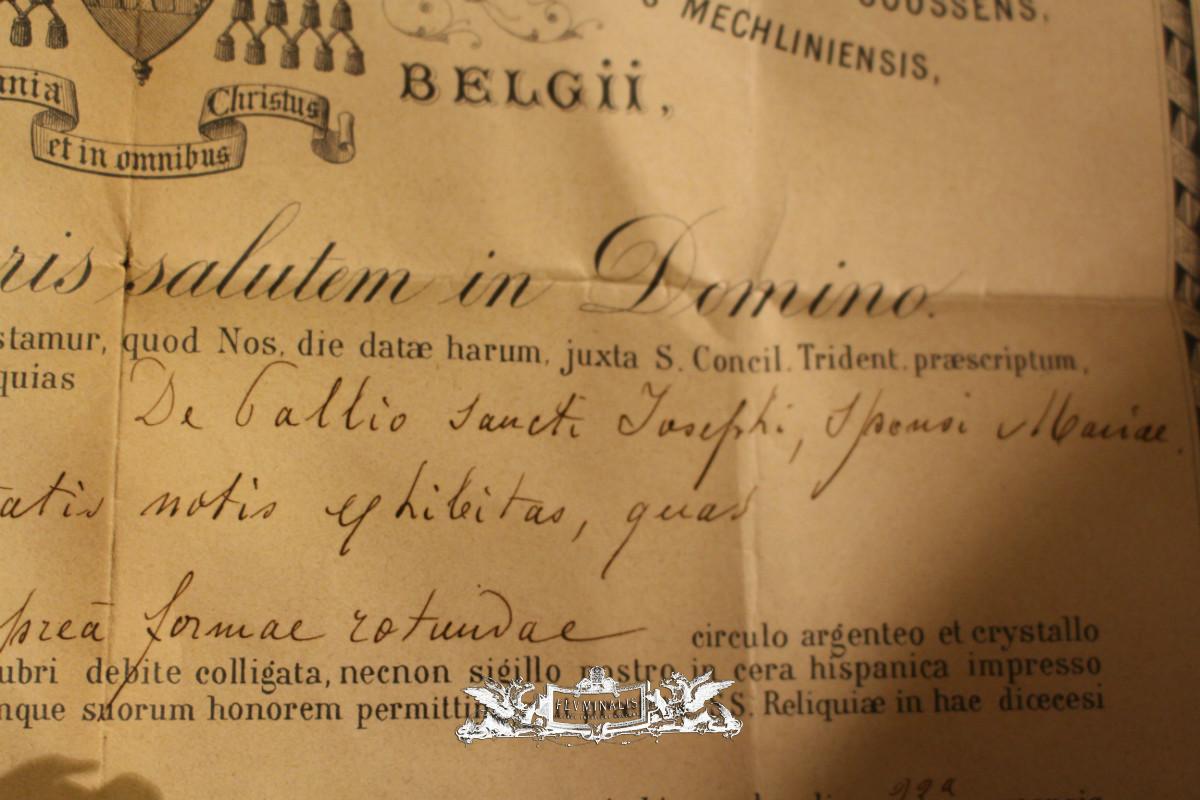 GOOSSENS,
MECHLINIENSIS,
BELGII,
Christus
et in omnibus
salutem in Domino.
stamur, quod Nos, die datæ harum, juxta S. Concil. Trident. præscriptum,
quias De Pallio Sancti Josephi, Sponsi Mariae.
atis notis exhibitas, quas
preâ formae rotundae circulo argenteo et crystallo
ubri debite colligata, necnon sigillo nostro in cera hispanica impresso
nque suorum honorem permittim S. Reliquiæ in hac diœcesi
FLVMINALIS